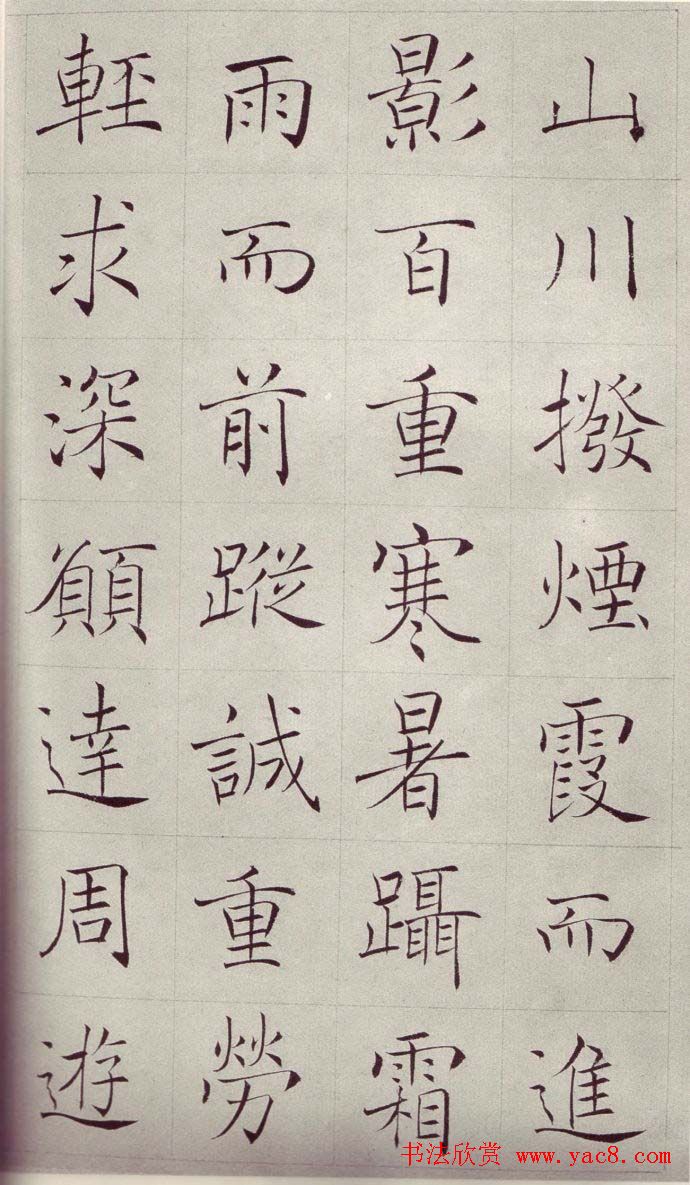 山川撥煙霞而進
影百重寒暑躡霜
雨而前蹤誠重勞
輕求深願達周遊
书法欣赏 www.yac8.com